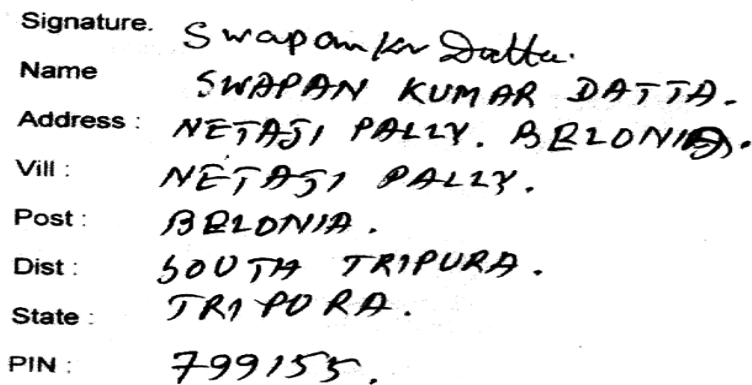 Signature. Swapan Kr Datta.
Name SWAPAN KUMAR DATTA.
Address : NETAJI PALLY. BELONIA.
Vill : NETAJI PALLY.
Post : BELONIA.
Dist : SOUTH TRIPURA.
State : TRIPURA.
PIN : 799155.